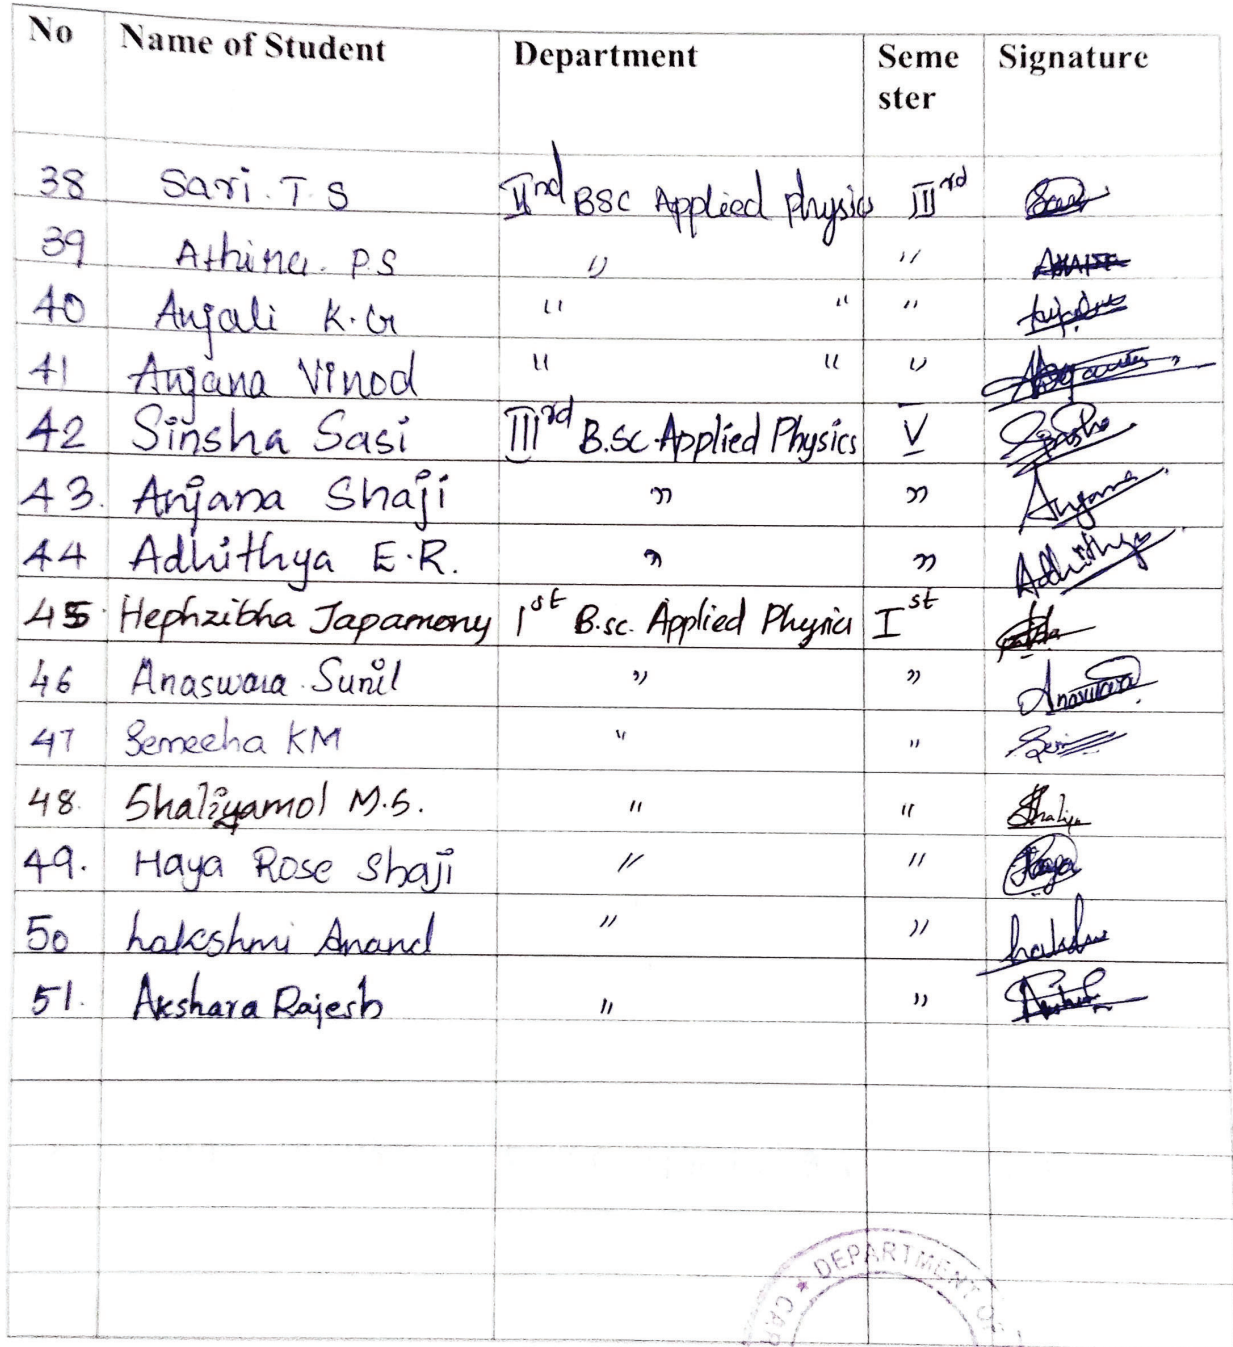 No Name of Student Department Seme Signature
ster
38 Sari. T. S IInd BSC Applied physics IIIrd Sari
39 Athina. P.S " "
40 Anjali K.G " " "
41 Anjana Vinod " " "
42 Sinsha Sasi IIIrd B.Sc. Applied Physics V
43. Anjana Shaji " " Anjana
44 Adhithya E.R. " " Adhithya
45. Hephzibha Japamony 1st B.sc. Applied Physics Ist
46 Anaswara Sunil " " Anaswara
47 Semeeha KM " "
48. Shaliyamol M.S. " " Shaliya
49. Haya Rose Shaji " " Haya
50 Lakshmi Anand " "
51. Akshara Rajesh " "
★ DEPARTMENT OF